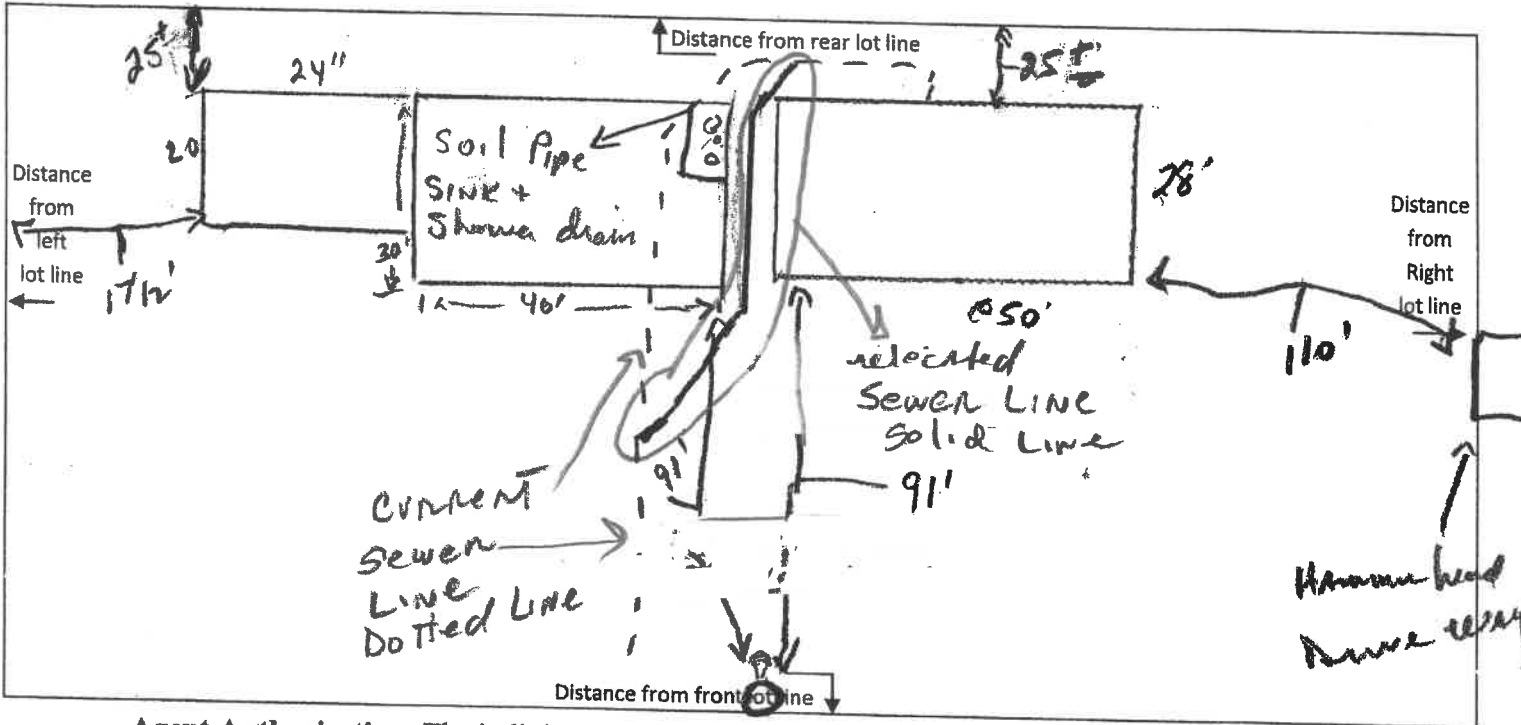 Distance from rear lot line
25±
24"
25±'
20
Soil Pipe
SINK +
Shower drain
28'
Distance
from
left
lot line
Distance
from
Right
lot line
30'
40'
50'
110'
relocated
SEWER LINE
Solid Line
91'
91'
CURRENT
Sewer
LINE
Dotted Line
Hammer head
Drive way
Distance from front lot line